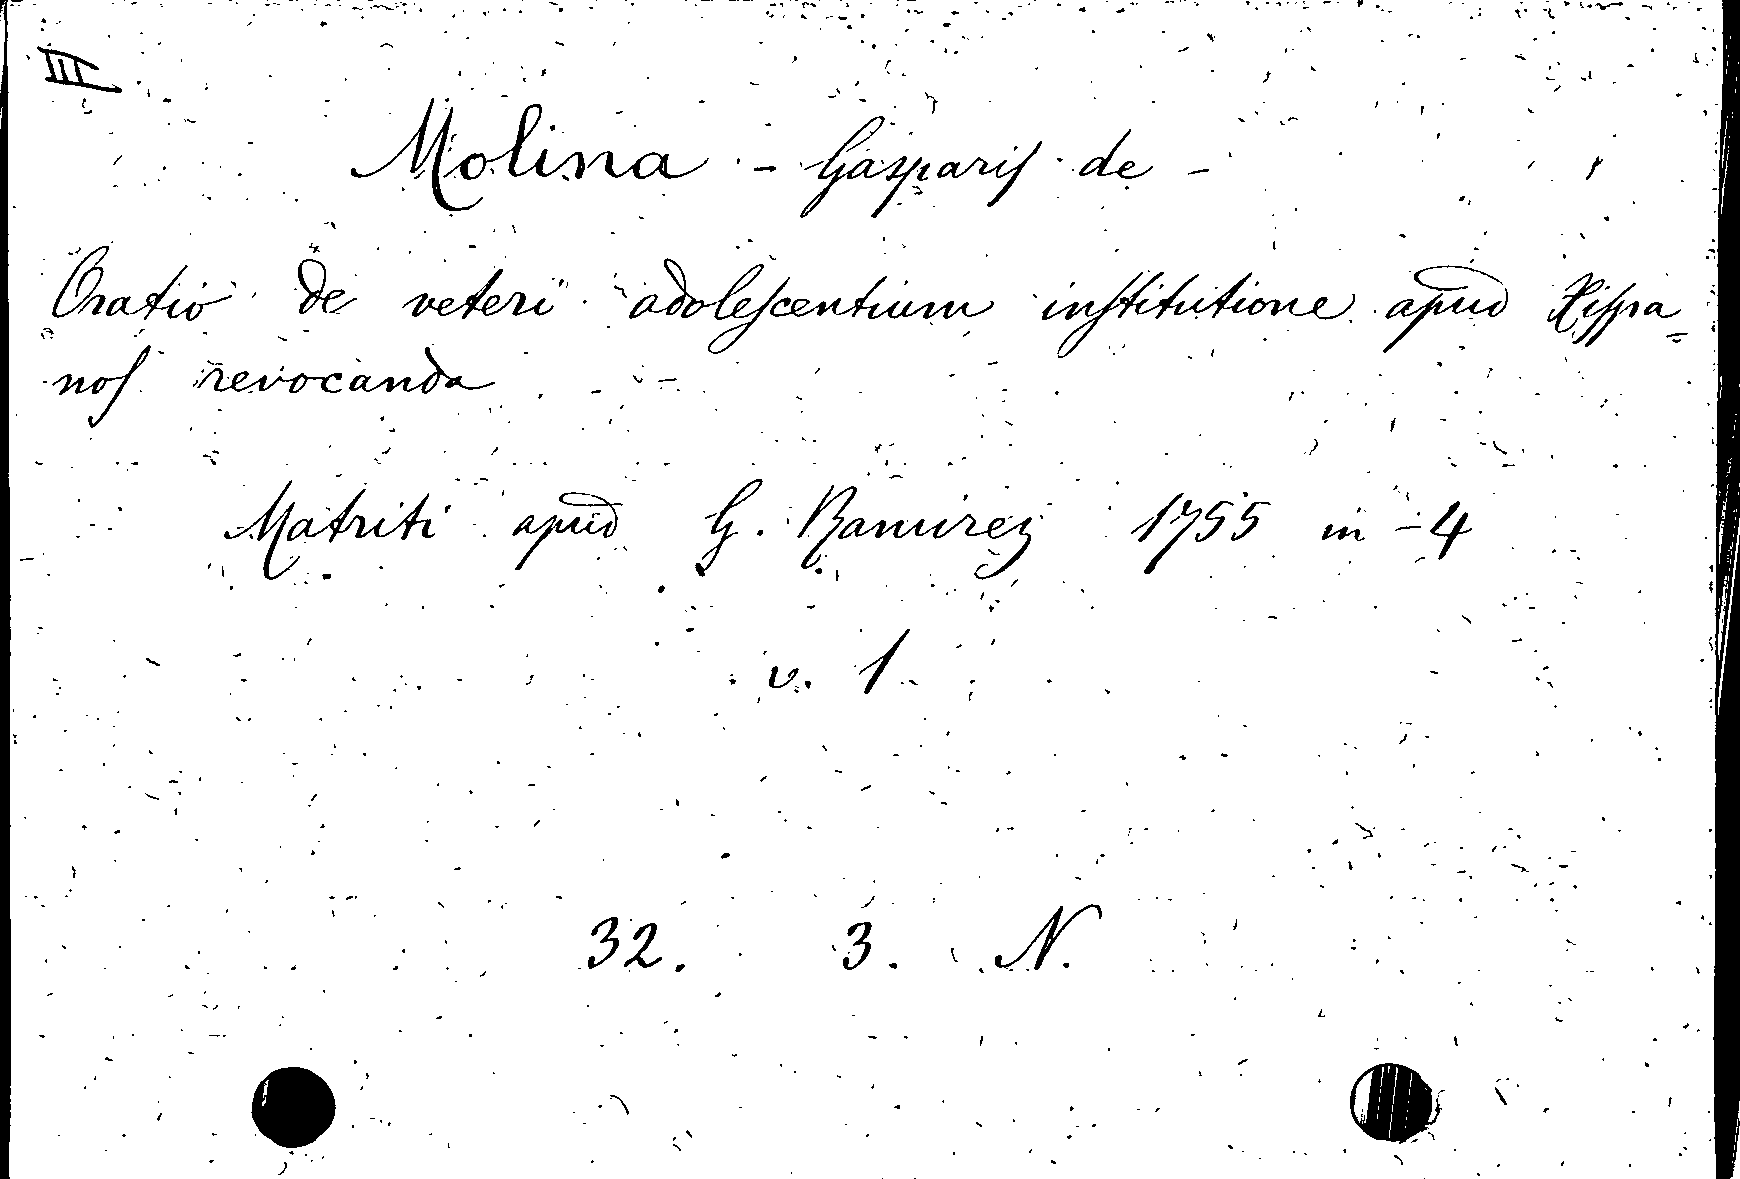 III
Molina - Gasparis de -
Oratio de veteri adolescentium institutione apud Hispa=
nos revocanda
Matriti apud G. Ramirez 1755 in-4
v. 1
32. 3. N.